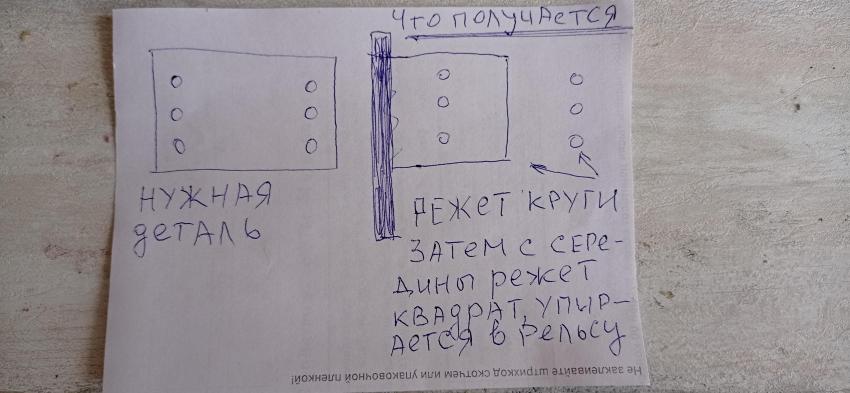 ЧТО ПОЛУЧАЕТСЯ
НУЖНАЯ
ДЕТАЛЬ
РЕЖЕТ КРУГИ
ЗАТЕМ С СЕРЕ-
ДИНЫ РЕЖЕТ
КВАДРАТ, УПИР-
АЕТСЯ В РЕЛЬСУ
Не заклеивайте штрихкод скотчем или упаковочной пленкой!